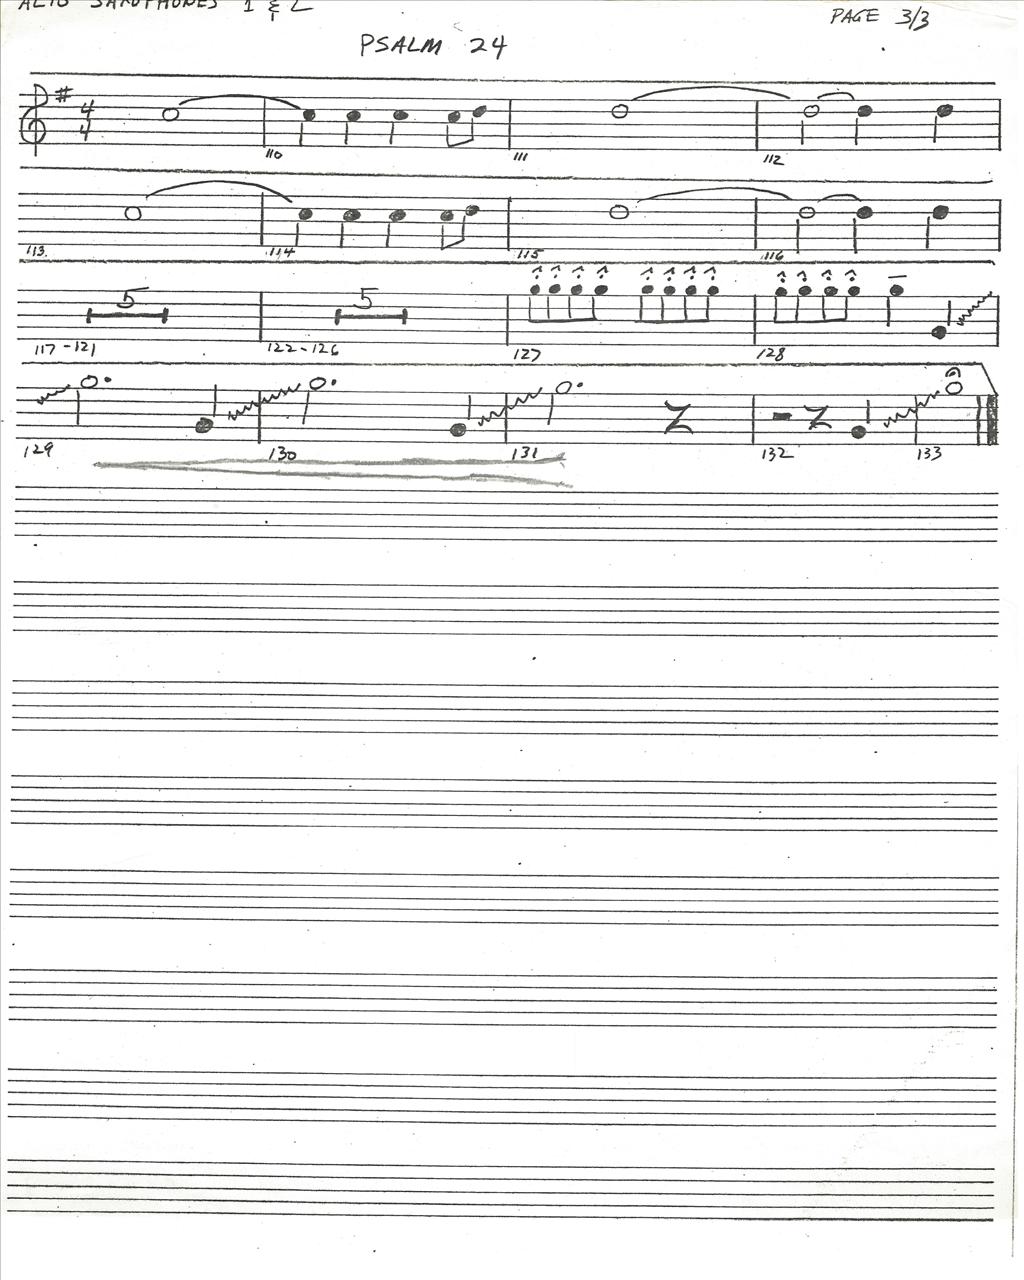 ALTO SAXOPHONES 1 & 2
PAGE 3/3
PSALM 24
4
4
110 111 112
113. 114 115 116
5 5
117-121 122-126 127 128
129 130 131 132 133